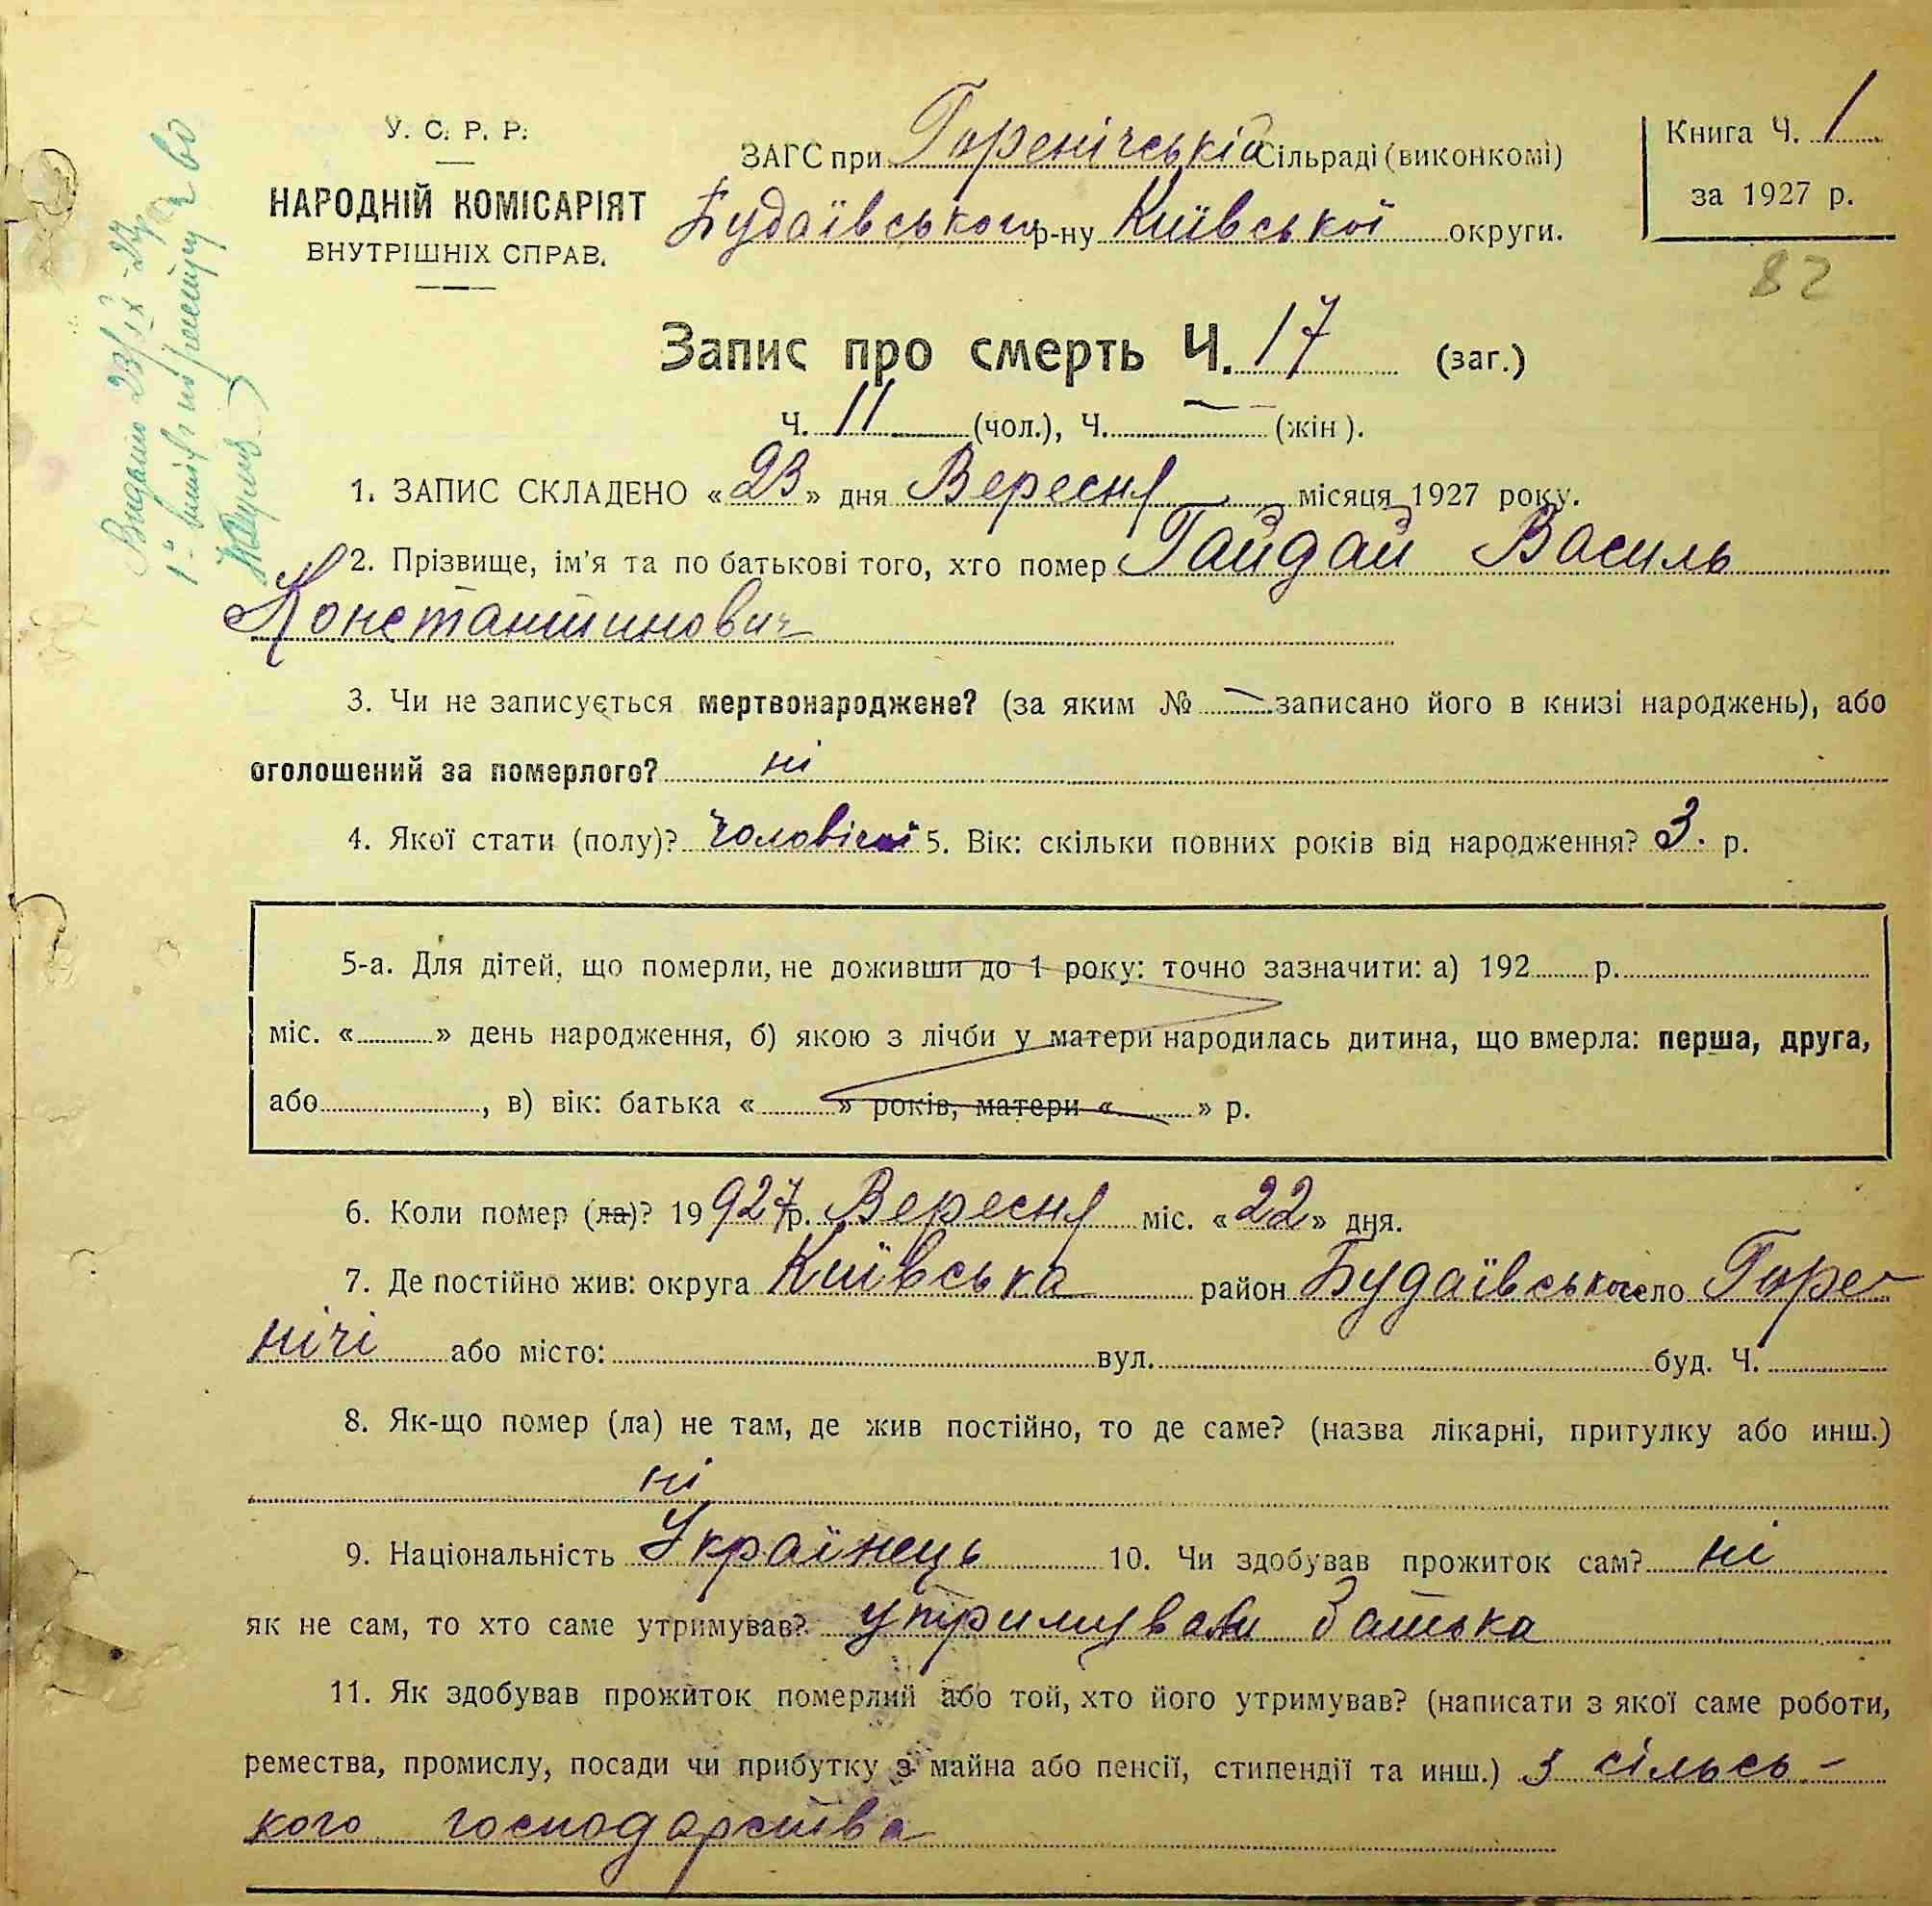 У. С. Р. Р.
НАРОДНІЙ КОМІСАРІЯТ
ВНУТРІШНІХ СПРАВ.
ЗАГС при Горенічській Сільраді (виконкомі)
Будаївського р-ну Київської округи.
Книга Ч. 1
за 1927 р.
82
Видано 23/IX 27
Запис про смерть Ч. 17 (заг.)
Ч. 11 (чол.), Ч. — (жін).
1. ЗАПИС СКЛАДЕНО «23» дня Вересня місяця 1927 року.
2. Прізвище, ім'я та по батькові того, хто помер Гайдай Василь
Константинович
3. Чи не записується мертвонароджене? (за яким № — записано його в книзі народжень), або
оголошений за померлого? ні
4. Якої стати (полу)? 5. Вік: скільки повних років від народження? 3. р.
5-а. Для дітей, що померли, не доживши до 1 року: точно зазначити: а) 192 р.
міс. « » день народження, б) якою з лічби у матери народилась дитина, що вмерла: перша, друга,
або , в) вік: батька « » років, матери « » р.
6. Коли помер (ла)? 19 927 р. Вересня міс. «22» дня.
7. Де постійно жив: округа Київська район Будаївсько село Горе-
нічі або місто: вул. буд. Ч.
8. Як-що помер (ла) не там, де жив постійно, то де саме? (назва лікарні, притулку або инш.)
ні
9. Національність Українець 10. Чи здобував прожиток сам? ні
як не сам, то хто саме утримував? батька
11. Як здобував прожиток померлий або той, хто його утримував? (написати з якої саме роботи,
ремества, промислу, посади чи прибутку з майна або пенсії, стипендії та инш.) З сільсь-
кого господарства